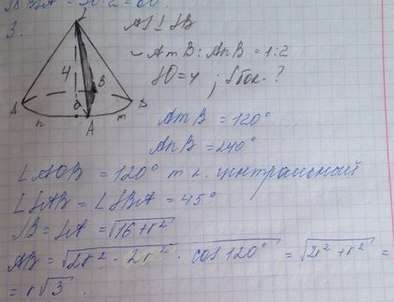 3.
AS⊥SB
◡AmB : AnB = 1:2
SO=4 ; Sбок. ?
S
4
A
B
B
O
n
A
m
AmB = 120°
AnB = 240°
∠AOB = 120° т.к. центральный
∠SAB = ∠SBA = 45°
SB = SA = √16+r²
AB = √2r² - 2r² · cos 120° = √2r² + r² =
= r√3.